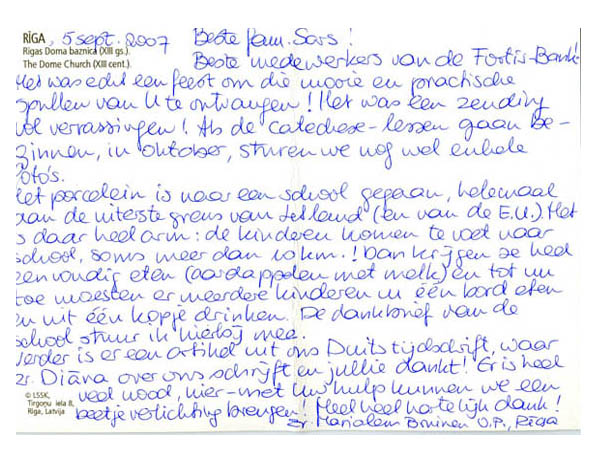 RĪGA, 5 sept. 2007 Beste fam. Sars!
Rīgas Doma baznīca (XIII gs.).
The Dome Church (XIII cent.). Beste medewerkers van de Fortis-Bank!
Het was echt een feest om die mooie en practische
spullen van U te ontvangen! Het was een zending
vol verrassingen! Als de catechese-lessen gaan be-
ginnen, in oktober, sturen we nog wel enkele
foto's.
Het porcelein is naar een school gegaan, helemaal
aan de uiterste grens van Letland (en van de E.U.). Het
is daar heel arm: de kinderen komen te voet naar
school, soms meer dan 10 km.! Dan krijgen ze heel
eenvoudig eten (aardappelen met melk) en tot nu
toe moesten er meerdere kinderen uit één bord eten
en uit één kopje drinken. De dankbrief van de
school stuur ik hierbij mee.
Verder is er een artikel uit ons Duits tijdschrift, waar
zr. Diāna over ons schrijft en jullie dankt! Er is heel
veel nood, hier - met Uw hulp kunnen we een
beetje verlichting brengen! Heel heel hartelijk dank!
© LSSK,
Tirgoņu iela 8,
Rīga, Latvija
zr. O.P., Rīga